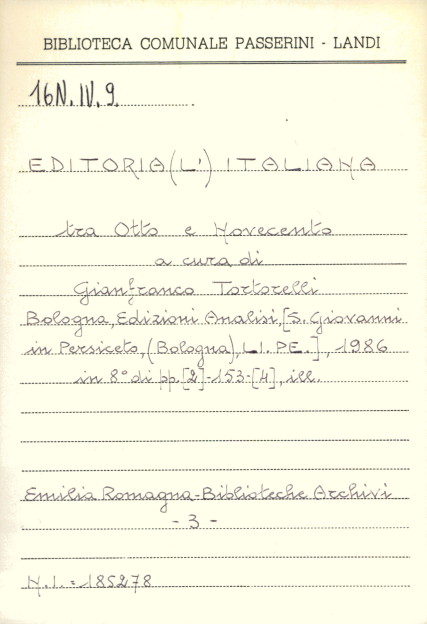 BIBLIOTECA COMUNALE PASSERINI - LANDI
16N.IV.9.
EDITORIA (L') ITALIANA
tra Otto e Novecento
a cura di
Gianfranco Tortorelli
Bologna, Edizioni Analisi, [S. Giovanni
in Persiceto, (Bologna), LI. PE.], 1986
in 8° di pp. [2]-153-[4], ill.
Emilia Romagna-Biblioteche Archivi
- 3 -
N.I. = 185278